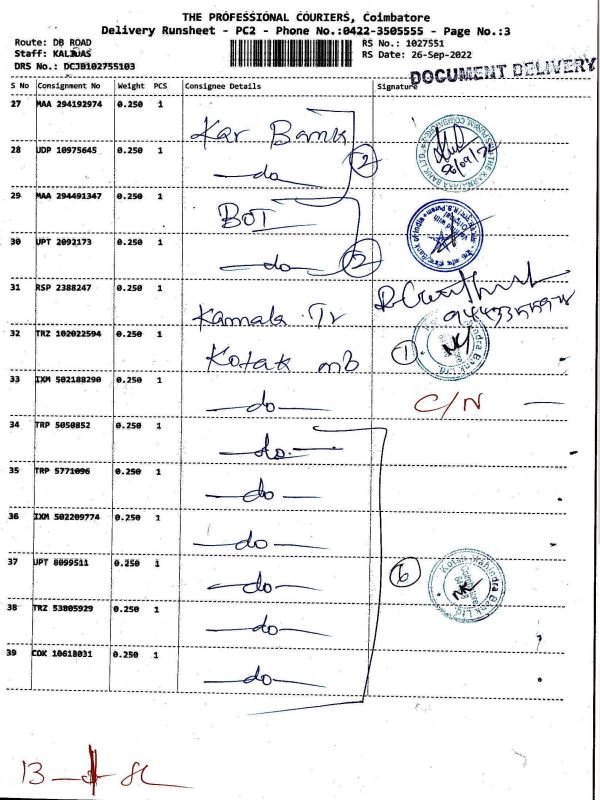 THE PROFESSIONAL COURIERS, Coimbatore
Delivery Runsheet - PC2 - Phone No.:0422-3505555 - Page No.:3
Route: DB ROAD
Staff: KALIDAS
DRS No.: DCJB102755103
RS No.: 1027551
RS Date: 26-Sep-2022
DOCUMENT DELIVERY
S No Consignment No Weight PCS Consignee Details Signature
27 MAA 294192974 0.250 1 Kar Bank
28 UDP 10975645 0.250 1 do 2
29 MAA 294491347 0.250 1 BOI
30 UPT 2092173 0.250 1 do 2
31 RSP 2388247 0.250 1 Kamala Tr
32 TRZ 102022594 0.250 1 Kotak mb 1
33 IXM 502188290 0.250 1 do C/N
34 TRP 5050852 0.250 1 do
35 TRP 5771096 0.250 1 do
36 IXM 502209774 0.250 1 do
37 UPT 8099511 0.250 1 do 6
Kotak Mahindra Bank Ltd.
38 TRZ 53805929 0.250 1 do
39 COK 10618031 0.250 1 do
13